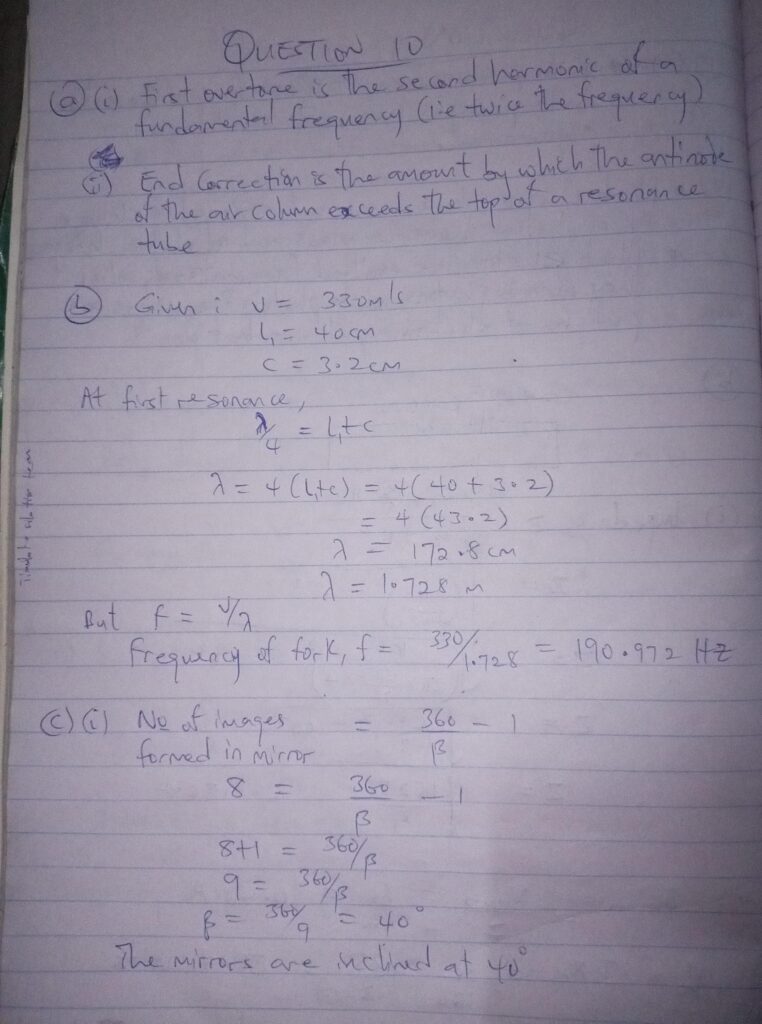 QUESTION 10
(a) (i) First overtone is the second harmonic of a
fundamental frequency (i.e twice the frequency)
(ii) End Correction is the amount by which the antinode
of the air column exceeds the top of a resonance
tube
(b) Given : v = 330m/s
l₁ = 40cm
c = 3.2cm
At first resonance,
λ/4 = l₁+c
λ = 4(l₁+c) = 4(40 + 3.2)
= 4(43.2)
λ = 172.8cm
λ = 1.728 m
But f = v/λ
Frequency of fork, f = 330/1.728 = 190.972 Hz
(c) (i) No of images = 360/β - 1
formed in mirror
8 = 360/β - 1
8+1 = 360/β
9 = 360/β
β = 360/9 = 40°
The mirrors are inclined at 40°